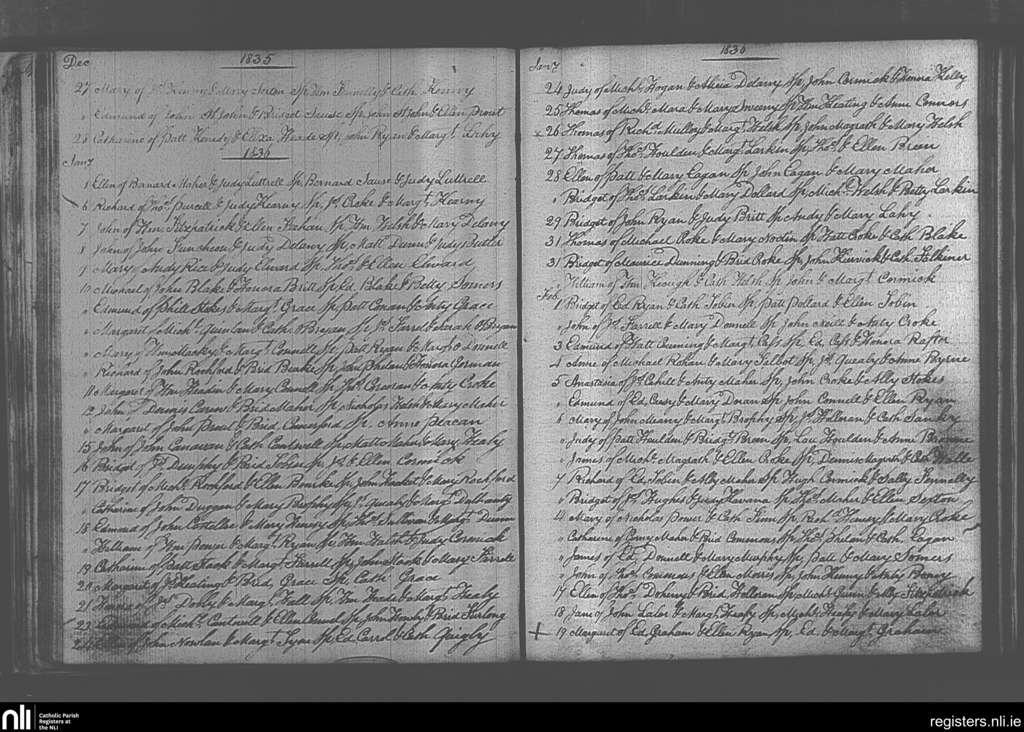 Dec 1835
27 Mary of Jas Kearny & Mary Sp Wm & Cath Kearny
" Edmund of John St John & Bridget Sause Sp John St John & Ellen Prout
28 Catharine of Patt & Eliza Sp John Ryan & Margt
Jany 1836
1 Ellen of Barnard Maher & Judy Luttrell Sp Bernard Sause & Judy Luttrell
6 Richard of Thos Purcell & Judy Kearny Sp Jas Croke & Margt Kearny
7 John of Wm Fitzpatrick & Ellen Sp Wm Walsh & Mary Delany
8 John of John & Judy Delany Sp Matt Dunn & Judy Butler
9 Mary of Andy Rice & Judy Elward Sp Thos & Ellen Elward
10 Michael of John Blake & Honora Britt Sp Ed Blake & Betty Somers
" Edmund of Philip Stokes & Margt Grace Sp Patt & Anty Grace
" Margaret of Michl Quinlan & Cath O Bryan Sp Jas Farrel & Sarah O Bryan
" Mary of Wm Mackey & Margt Connell Sp Patt Ryan & Margt O Donnell
" Richard of John Rochford & Brid Burke Sp John Phelan & Honora Gorman
11 Margaret of Wm Headen & Mary Connell Sp Thos & Anty Croke
12 John of Dennis & Brid Maher Sp Nicholas Walsh & Mary Maher
" Margaret of John Prout & Brid Comerford Sp Anne
15 John of John & Cath Cantwell Sp Matt Maher & Mary Healy
16 Bridget of Jas Dunphy & Brid Tobin Sp Jas & Ellen Cormick
17 Bridget of Michl Rochford & Ellen Bourke Sp John Hackett & Mary Rochford
" Catharine of John Duggan & Mary Brophy Sp Jas & Margt
18 Edmund of John Costelloe & Mary Henessy Sp Thos & Margt Dunne
" William of Wm Power & Margt Ryan Sp Wm Walsh & Judy Cormick
19 Catharine of Patt Hack & Margt Farrell Sp John Hack & Mary Farrell
20 Margaret of Jas Keating & Brid Grace Sp Cath Grace
21 of Jas Dooly & Margt Hall Sp Wm Meade & Margt Healy
23 of Michl Cantwell & Ellen Sp John & Brid Furlong
24 of John Nowlan & Margt Sp Ed Carrol & Cath Quigly
1836
Jany
24 Judy of Michl Hogan & Maria Delany Sp John Cormick & Honora Kelly
25 Thomas of Michl Mara & Mary Sweeny Sp Wm Keating & Anne Connors
26 Thomas of Richd Mulloy & Margt Welsh Sp John Magrath & Mary Welsh
27 Thomas of Thos Houlden & Margt Larkin Sp Thos & Ellen Breen
28 Ellen of Patt & Mary Eagan Sp John Eagan & Mary Maher
" Bridget of Thos Larkin & Mary Dollard Sp Michl Welsh & Betty Larkin
29 Bridget of John Ryan & Judy Britt Sp Andy & Mary Lahy
31 Thomas of Michael Roke & Mary Noctin Sp Watt Croke & Cath Blake
31 Bridget of Maurice Dunning & Brid Roke Sp John & Cath Falkiner
" William of Wm Keough & Cath Welsh Sp John & Margt Cormick
Feb
1 Bridget of Ed Ryan & Cath Tobin Sp Patt Dollard & Ellen Tobin
" John of Jas Farrell & Mary Donnell Sp John Neill & Anty Croke
3 Edmund of Watt Dunning & Margt Cass Sp Ed Cass & Honora Rafter
4 Anne of Michael Rohan & Mary Talbot Sp Jas & Anne Byrne
5 Anastasia of Jas Cahill & Anty Maher Sp John Croke & Ally Stokes
" Edmund of Ed Casey & Mary Doran Sp John Connell & Ellen Ryan
6 Mary of John Meany & Margt Brophy Sp Jas Holloran & Cath Sankey
" Judy of Patt Houlden & Bridgt Breen Sp Lau Houlden & Anne Browne
" James of Michl Magrath & Ellen Roke Sp Dennis Magrath & Cath
7 Richard of Ed Tobin & Ally Maher Sp Hugh Cormick & Sally Fennelly
" Bridget of Jas Hughes & Judy Havana Sp Thos Maher & Ellen Sexton
14 Mary of Nicholas Power & Cath Finn Sp Richd & Mary Roke
" Catharine of Corny Maher & Brid Commons Sp Thos Phelan & Cath Eagan
" James of Ed Donnell & Mary Murphy Sp Patt & Mary Somers
" John of Thos & Ellen Morris Sp John Kenny &
17 Ellen of Thos Doheny & Brid Holloran Sp Michl Quinn & Ally Fitzpatrick
18 Jane of John Lalor & Margt Healy Sp Michl Healy & Mary Lalor
19 Margaret of Ed Graham & Ellen Ryan Sp Ed & Margt Graham
nli
Catholic Parish
Registers at
the NLI
registers.nli.ie